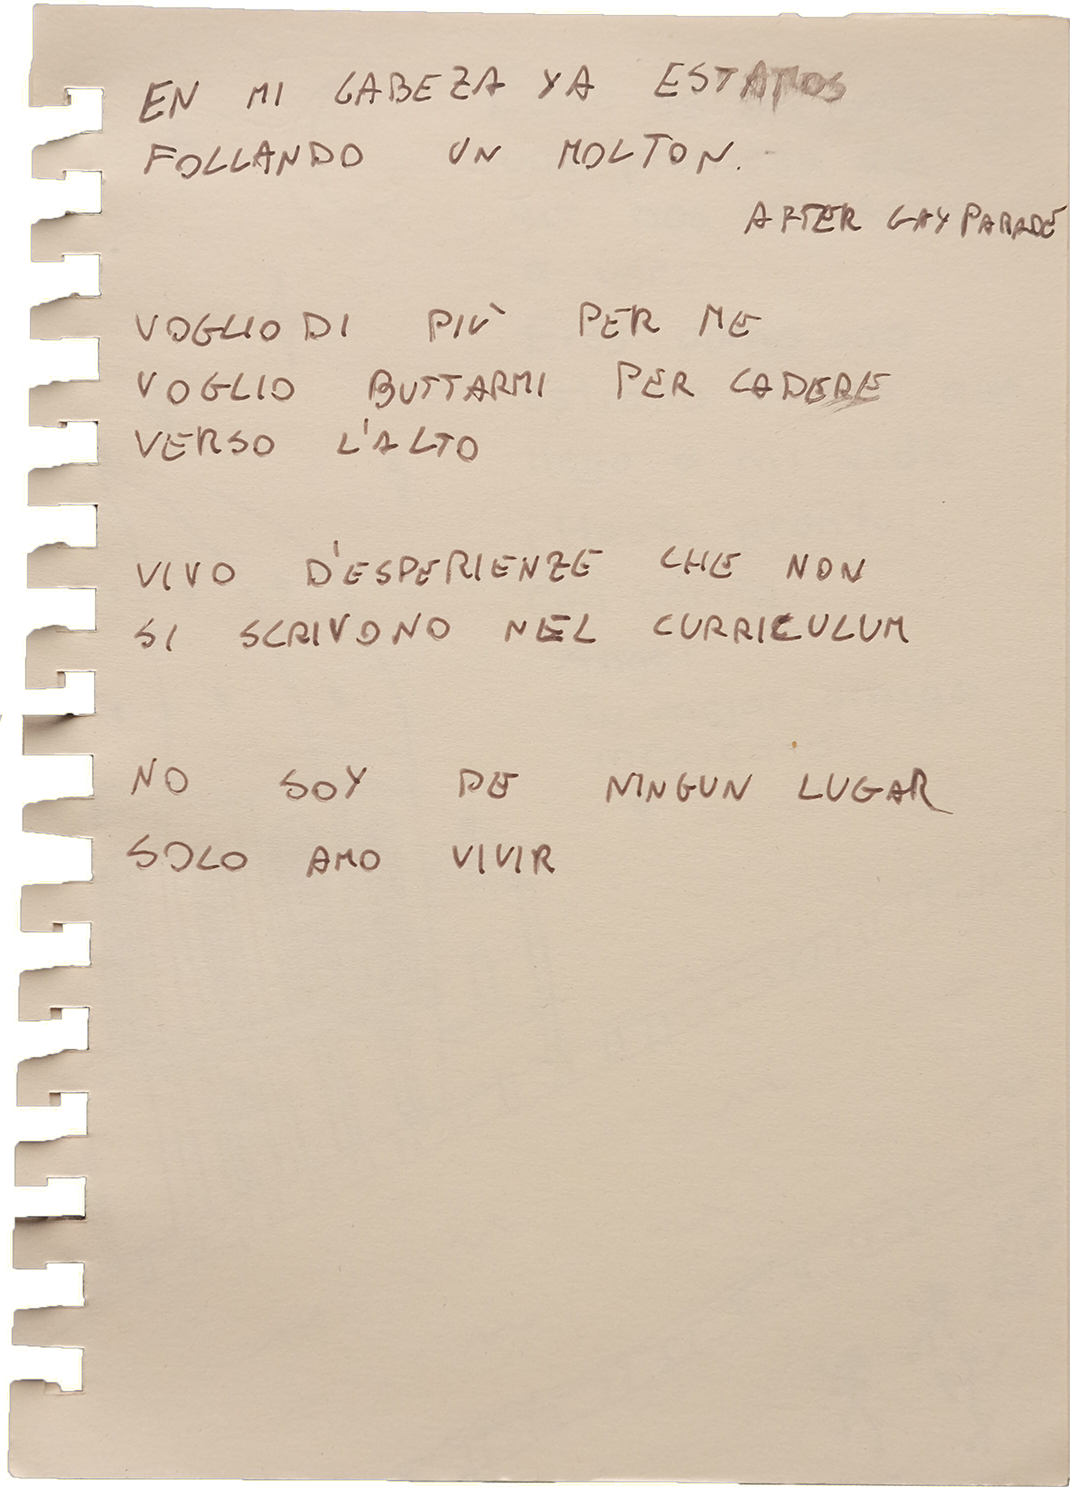 EN MI CABEZA YA ESTAMOS
FOLLANDO UN MOLTON.
AFTER GAY PARADE
VOGLIO DI PIÙ PER ME
VOGLIO BUTTARMI PER CADERE
VERSO L'ALTO
VIVO D'ESPERIENZE CHE NON
SI SCRIVONO NEL CURRICULUM
NO SOY DE NINGUN LUGAR
SOLO AMO VIVIR